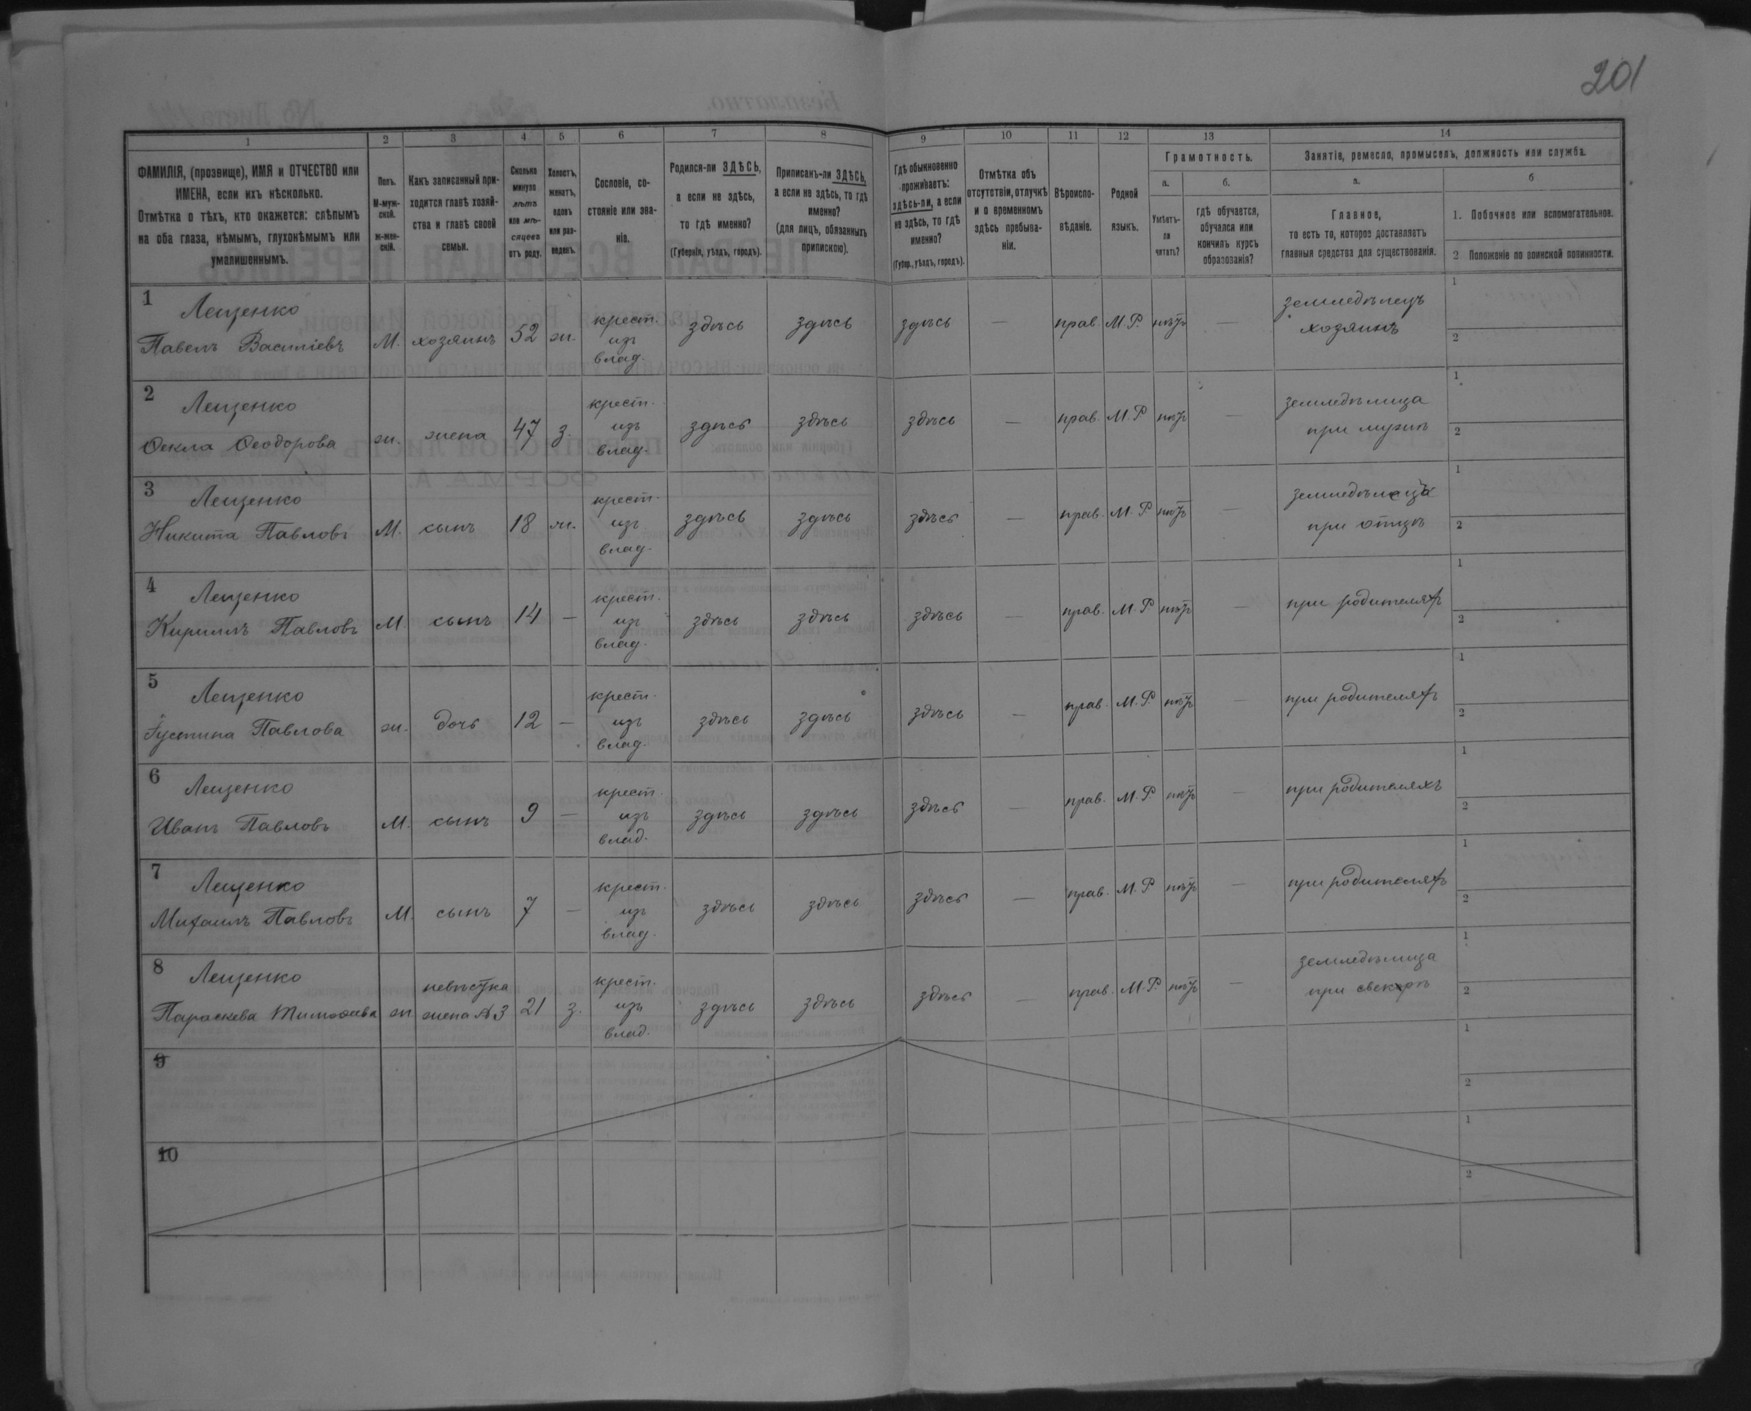 201
1 2 3 4 5 6 7 8 9 10 11 12 13 14
ФАМИЛІЯ, (прозвище), ИМЯ и ОТЧЕСТВО или
ИМЕНА, если ихъ нѣсколько.
Отмѣтка о тѣхъ, кто окажется: слѣпымъ
на оба глаза, нѣмымъ, глухонѣмымъ или
умалишеннымъ.
Полъ.
М-муж-
ской.
ж-жен-
скій.
Какъ записанный при-
ходится главѣ хозяй-
ства и главѣ своей
семьи.
Сколько
минуло
лѣтъ
или мѣ-
сяцевъ
отъ роду.
Холостъ,
женатъ,
вдовъ
или раз-
веденъ.
Сословіе, со-
стояніе или зва-
ніе.
Родился-ли ЗДѢСЬ,
а если не здѣсь,
то гдѣ именно?
(Губернія, уѣздъ, городъ).
Приписанъ-ли ЗДѢСЬ,
а если не здѣсь, то гдѣ
именно?
(для лицъ, обязанныхъ
припискою).
Гдѣ обыкновенно
проживаетъ:
здѣсь-ли, а если
не здѣсь, то гдѣ
именно?
(Губер., уѣздъ, городъ).
Отмѣтка объ
отсутствіи, отлучкѣ
и о временномъ
здѣсь пребыва-
ніи.
Вѣроиспо-
вѣданіе.
Родной
языкъ.
Грамотность.
а.
Умѣетъ-
ли
читать?
б.
гдѣ обучается,
обучался или
кончилъ курсъ
образованія?
Занятія, ремесло, промыселъ, должность или служба.
а.
Главное,
то есть то, которое доставляетъ
главныя средства для существованія.
б
1. Побочное или вспомогательное.
2 Положеніе по воинской повинности.
1 Лещенко
Павелъ Василіевъ М. хозяинъ 52 ж. крест. изъ влад. здѣсь здѣсь здѣсь — прав. М.Р. нѣтъ — земледѣлецъ хозяинъ 1 2
2 Лещенко
Ѳекла Ѳеодорова ж. жена 47 з крест. изъ влад. здѣсь здѣсь здѣсь — прав. М.Р нѣтъ — земледѣлица при мужѣ 1 2
3 Лещенко
Никита Павловъ М. сынъ 18 ж. крест. изъ влад. здѣсь здѣсь здѣсь — прав. М.Р нѣтъ — земледѣлецъ при отцѣ 1 2
4 Лещенко
Кириллъ Павловъ М сынъ 14 — крест. изъ влад. здѣсь здѣсь здѣсь — прав. М.Р нѣтъ — при родителяхъ 1 2
5 Лещенко
Іустина Павлова ж. дочь 12 — крест. изъ влад. здѣсь здѣсь здѣсь — прав. М.Р. нѣтъ — при родителяхъ 1 2
6 Лещенко
Иванъ Павловъ М. сынъ 9 — крест. изъ влад. здѣсь здѣсь здѣсь — прав. М.Р нѣтъ — при родителяхъ 1 2
7 Лещенко
Михаилъ Павловъ М. сынъ 7 — крест. изъ влад. здѣсь здѣсь здѣсь — прав. М.Р нѣтъ — при родителяхъ 1 2
8 Лещенко
Параскева Тимоѳеева ж невѣстка жена №3 21 з. крест. изъ влад. здѣсь здѣсь здѣсь — прав. М.Р. нѣтъ — земледѣлица при свекрѣ 1 2
9 1 2
10 1 2